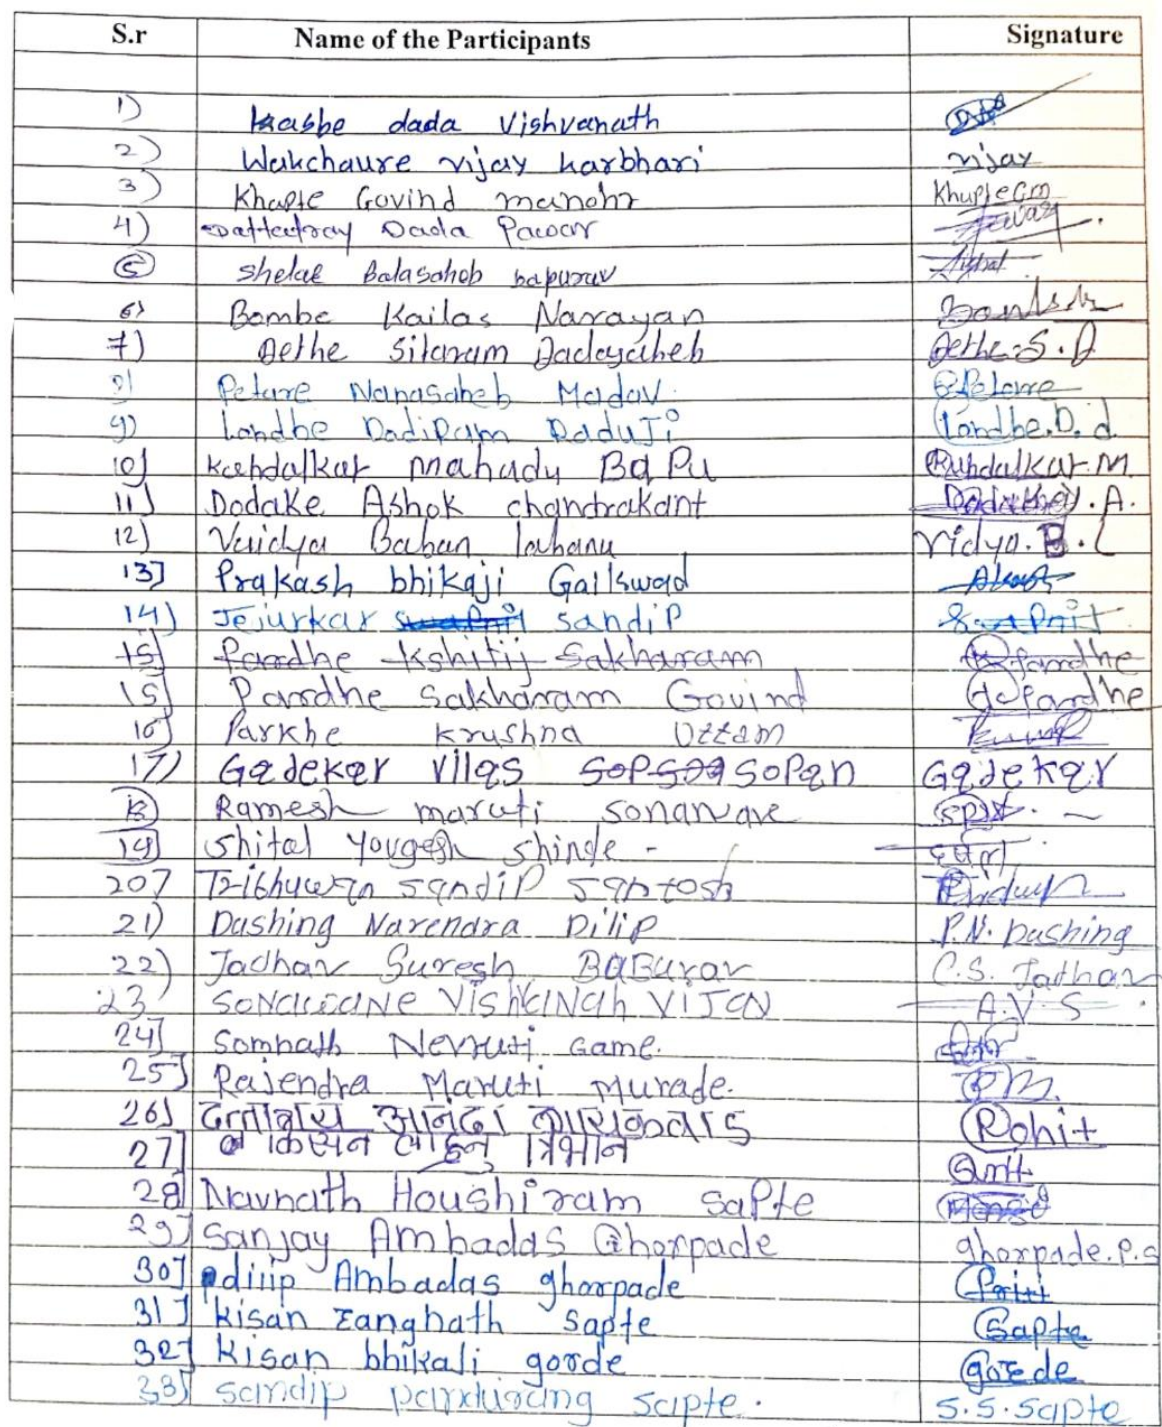 S.r Name of the Participants Signature
1) Kasbe dada Vishvanath
2) Wakchaure vijay karbhari vijay
3) Khapte Govind manohr
4) Dattatray Dada Pawar
5 Shelae Balasaheb bapurav
6) Bombe Kailas Narayan
7) Aethe Sitaram Dadasaheb Aethe.S.D
Petare Nanasaheb Madav.
9) Londhe Dadiram Daduji Londhe.D.d.
10] Kundalkar mahadu BaPu Kundalkar.M
11] Dodake Ashok chandrakant
12) Vaidya Baban lahanu Vidya.B.L
13] Prakash bhikaji Gaikwad
14) Jejurkar sandip
15] Pardhe Kshitij Sakharam Pardhe
15] Pardhe Sakharam Govind Pardhe
16 Parkhe Krushna Uttam
17) Gadekar Vilas Sopan Gadekar
18 Ramesh maruti sonawane
19] Shital Yougesh Shinde -
20] Tribhuwan Sandip Santosh
21) Dashing Narendra Dilip P.N. Dashing
22) Jadhav Suresh BaBurav C.S. Jadhav
23 Sonawane Vishvanah Vijay A.V.S
24] Somnath Nevruti Game.
25] Rajendra Maruti Murade.
26] दत्तात्रय आनंदा गायकवाड Rohit
27] किसन लाहनु त्रिभान
28] Navnath Houshiram Sapte
29] Sanjay Ambadas Ghorpade ghorpade.P.S
30] dilip Ambadas ghorpade
31] Kisan Zangnath Sapte Sapte
32] Kisan bhikali gorde gorde
33] Sandip pandurang sapte. S.S.Sapte